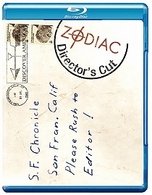 ZODIAC
Director's Cut
S.F. Chronicle
San Fran. Calif
Please Rush to
Editor!